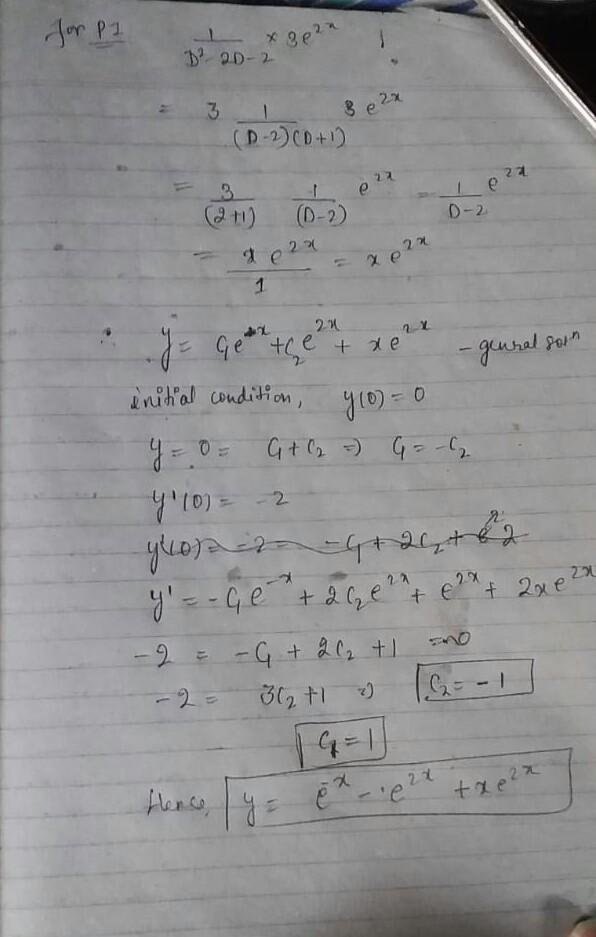 for PI 1/(D² - 2D - 2) × 3e^{2x}
= 3 1/((D-2)(D+1)) 3 e^{2x}
= 3/(2+1) 1/(D-2) e^{2x} = 1/(D-2) e^{2x}
= x e^{2x}/1 = x e^{2x}
∴ y = C₁e^{-x} + C₂e^{2x} + xe^{2x} - general solⁿ
initial condition, y(0) = 0
y = 0 = C₁ + C₂ => C₁ = -C₂
y'(0) = -2
y'(0) = -2 = -C₁ + 2C₂ + 2
y' = -C₁e^{-x} + 2C₂e^{2x} + e^{2x} + 2xe^{2x}
-2 = -C₁ + 2C₂ + 1
-2 = 3C₂ + 1 => C₂ = -1
C₁ = 1
Hence, y = e^{-x} - e^{2x} + xe^{2x}